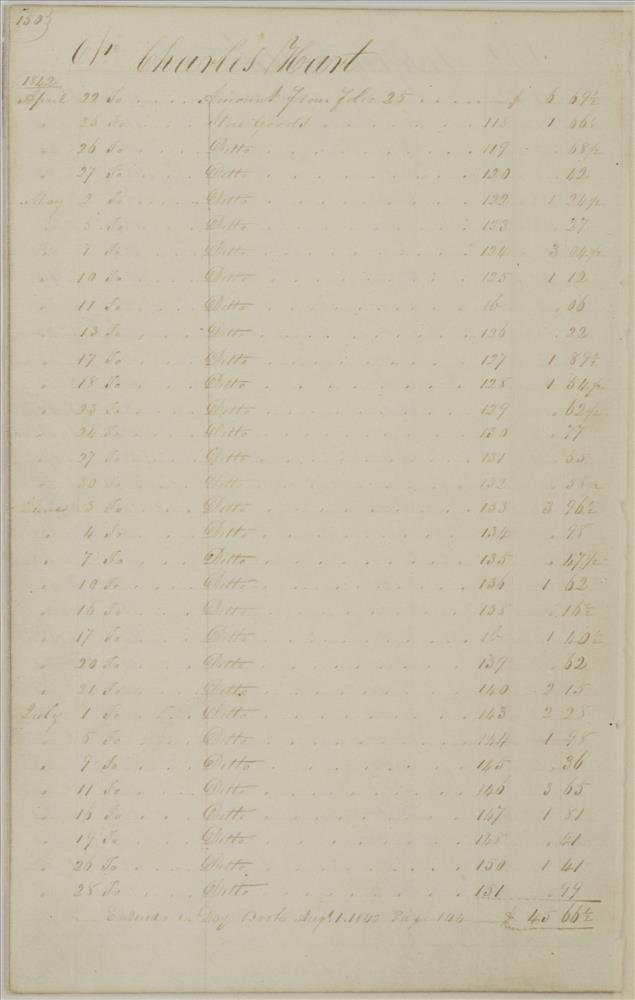 150½
Dr Charles Hart
1842
April 22 To . . . . Amount from folio 25 . . . . $ 6 69½
" 25 To . . . . Store Goods . . . . 118 1 56½
" 26 To . . . . Ditto . . . . 119 . 68½
" 27 To . . . . Ditto . . . . 120 . 42
May 2 To . . . . Ditto . . . . 122 1 24½
" 5 To . . . . Ditto . . . . 123 . 27
" 7 To . . . . Ditto . . . . 124 3 04½
" 10 To . . . . Ditto . . . . 125 1 12
" 11 To . . . . Ditto . . . . ib . 06
" 13 To . . . . Ditto . . . . 126 . 22
" 17 To . . . . Ditto . . . . 127 1 89½
" 18 To . . . . Ditto . . . . 128 1 54½
" 23 To . . . . Ditto . . . . 129 . 62½
" 24 To . . . . Ditto . . . . 130 . 77
" 27 To . . . . Ditto . . . . 131 . 55
" 30 To . . . . Ditto . . . . 132 . 58½
June 3 To . . . . Ditto . . . . 133 3 96½
" 4 To . . . . Ditto . . . . 134 . 98
" 7 To . . . . Ditto . . . . 135 . 47½
" 10 To . . . . Ditto . . . . 136 1 62
" 16 To . . . . Ditto . . . . 138 . 16½
" 17 To . . . . Ditto . . . . ib 1 40½
" 20 To . . . . Ditto . . . . 139 . 62
" 21 To . . . . Ditto . . . . 140 2 15
July 1 To . . . . Ditto . . . . 143 2 28
" 5 To . . . . Ditto . . . . 144 1 98
" 9 To . . . . Ditto . . . . 145 . 36
" 11 To . . . . Ditto . . . . 146 3 65
" 16 To . . . . Ditto . . . . 147 1 81
" 19 To . . . . Ditto . . . . 148 . 41
" 26 To . . . . Ditto . . . . 150 1 41
" 28 To . . . . Ditto . . . . 151 . 99
Entered in Day Book Augt. 1. 1842 Page 144 $ 45 66½